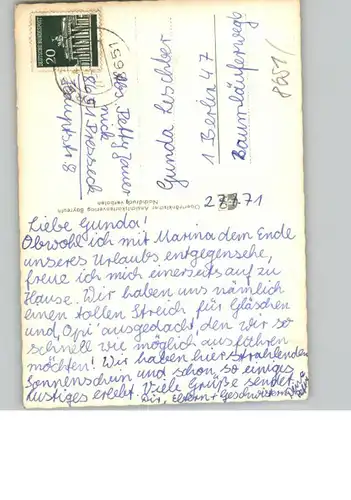 DEUTSCHE BUNDESPOST
20
Abs. Petty
8651 Presseck
Hauptstr. 8
Gunda
1 Berlin 47
Baumläuferweg
8651/
Oberfränkischer Ansichtskartenverlag Bayreuth
Nachdruck verboten
71
Liebe Gunda!
Obwohl ich mit Marina dem Ende
unseres Urlaubs entgegensehe,
freue ich mich einerseits auf zu
Hause. Wir haben uns nämlich
einen tollen Streich für Gläschen
und „Opi“ ausgedacht, den wir so
schnell wie möglich ausführen
möchten! Wir haben hier strahlenden
Sonnenschein und schon so einiges
Lustiges erlebt. Viele Grüße sendet
Dir, Eltern + Geschwistern